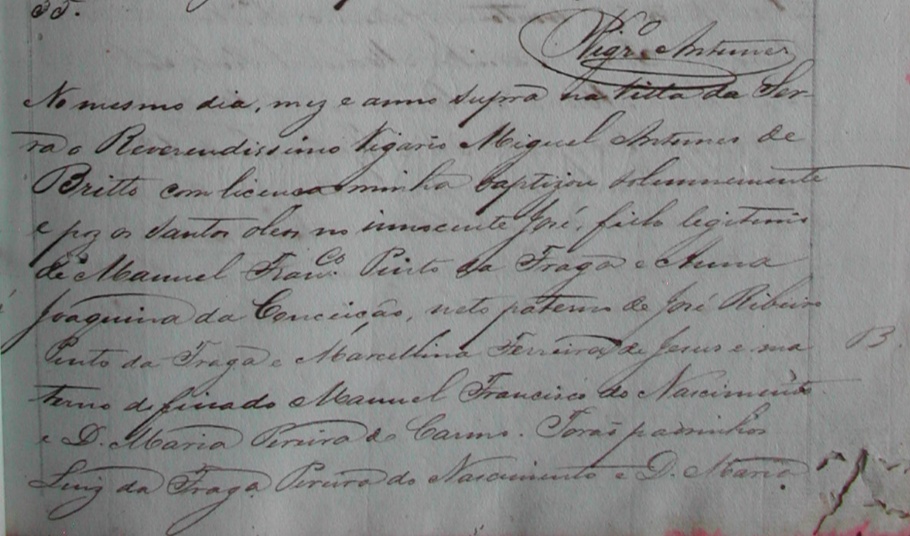 55.
Vigr.º Antunes
No mesmo dia, mez e anno supra na Villa da Ser-
ra o Reverendissimo Vigario Miguel Antunes de
Britto com licensa minha baptizou solemnemente
e poz os santos oleos no innocente José, filho legitimo
de Manuel Fran.co Pinto da Fraga e Anna
Joaquina da Conceição, neto paterno de José Ribeiro
Pinto da Fraga e Marcellina Ferreira de Jesus e ma
terno do finado Manuel Francisco do Nascimento
e D. Maria Pereira do Carmo. Forão padrinhos
Luiz da Fraga Pereira do Nascimento e D. Maria
B.